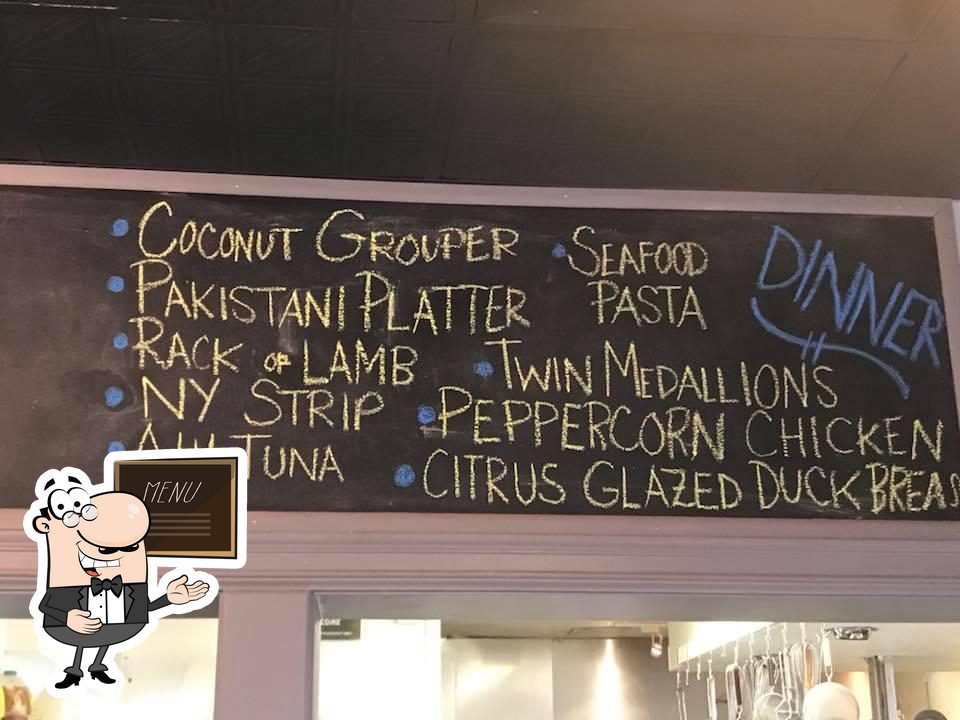 COCONUT GROUPER
PAKISTANI PLATTER
RACK OF LAMB
NY STRIP
TUNA
SEAFOOD
PASTA
TWIN MEDALLIONS
PEPPERCORN CHICKEN
CITRUS GLAZED DUCK BREAS
DINNER
MENU
COME